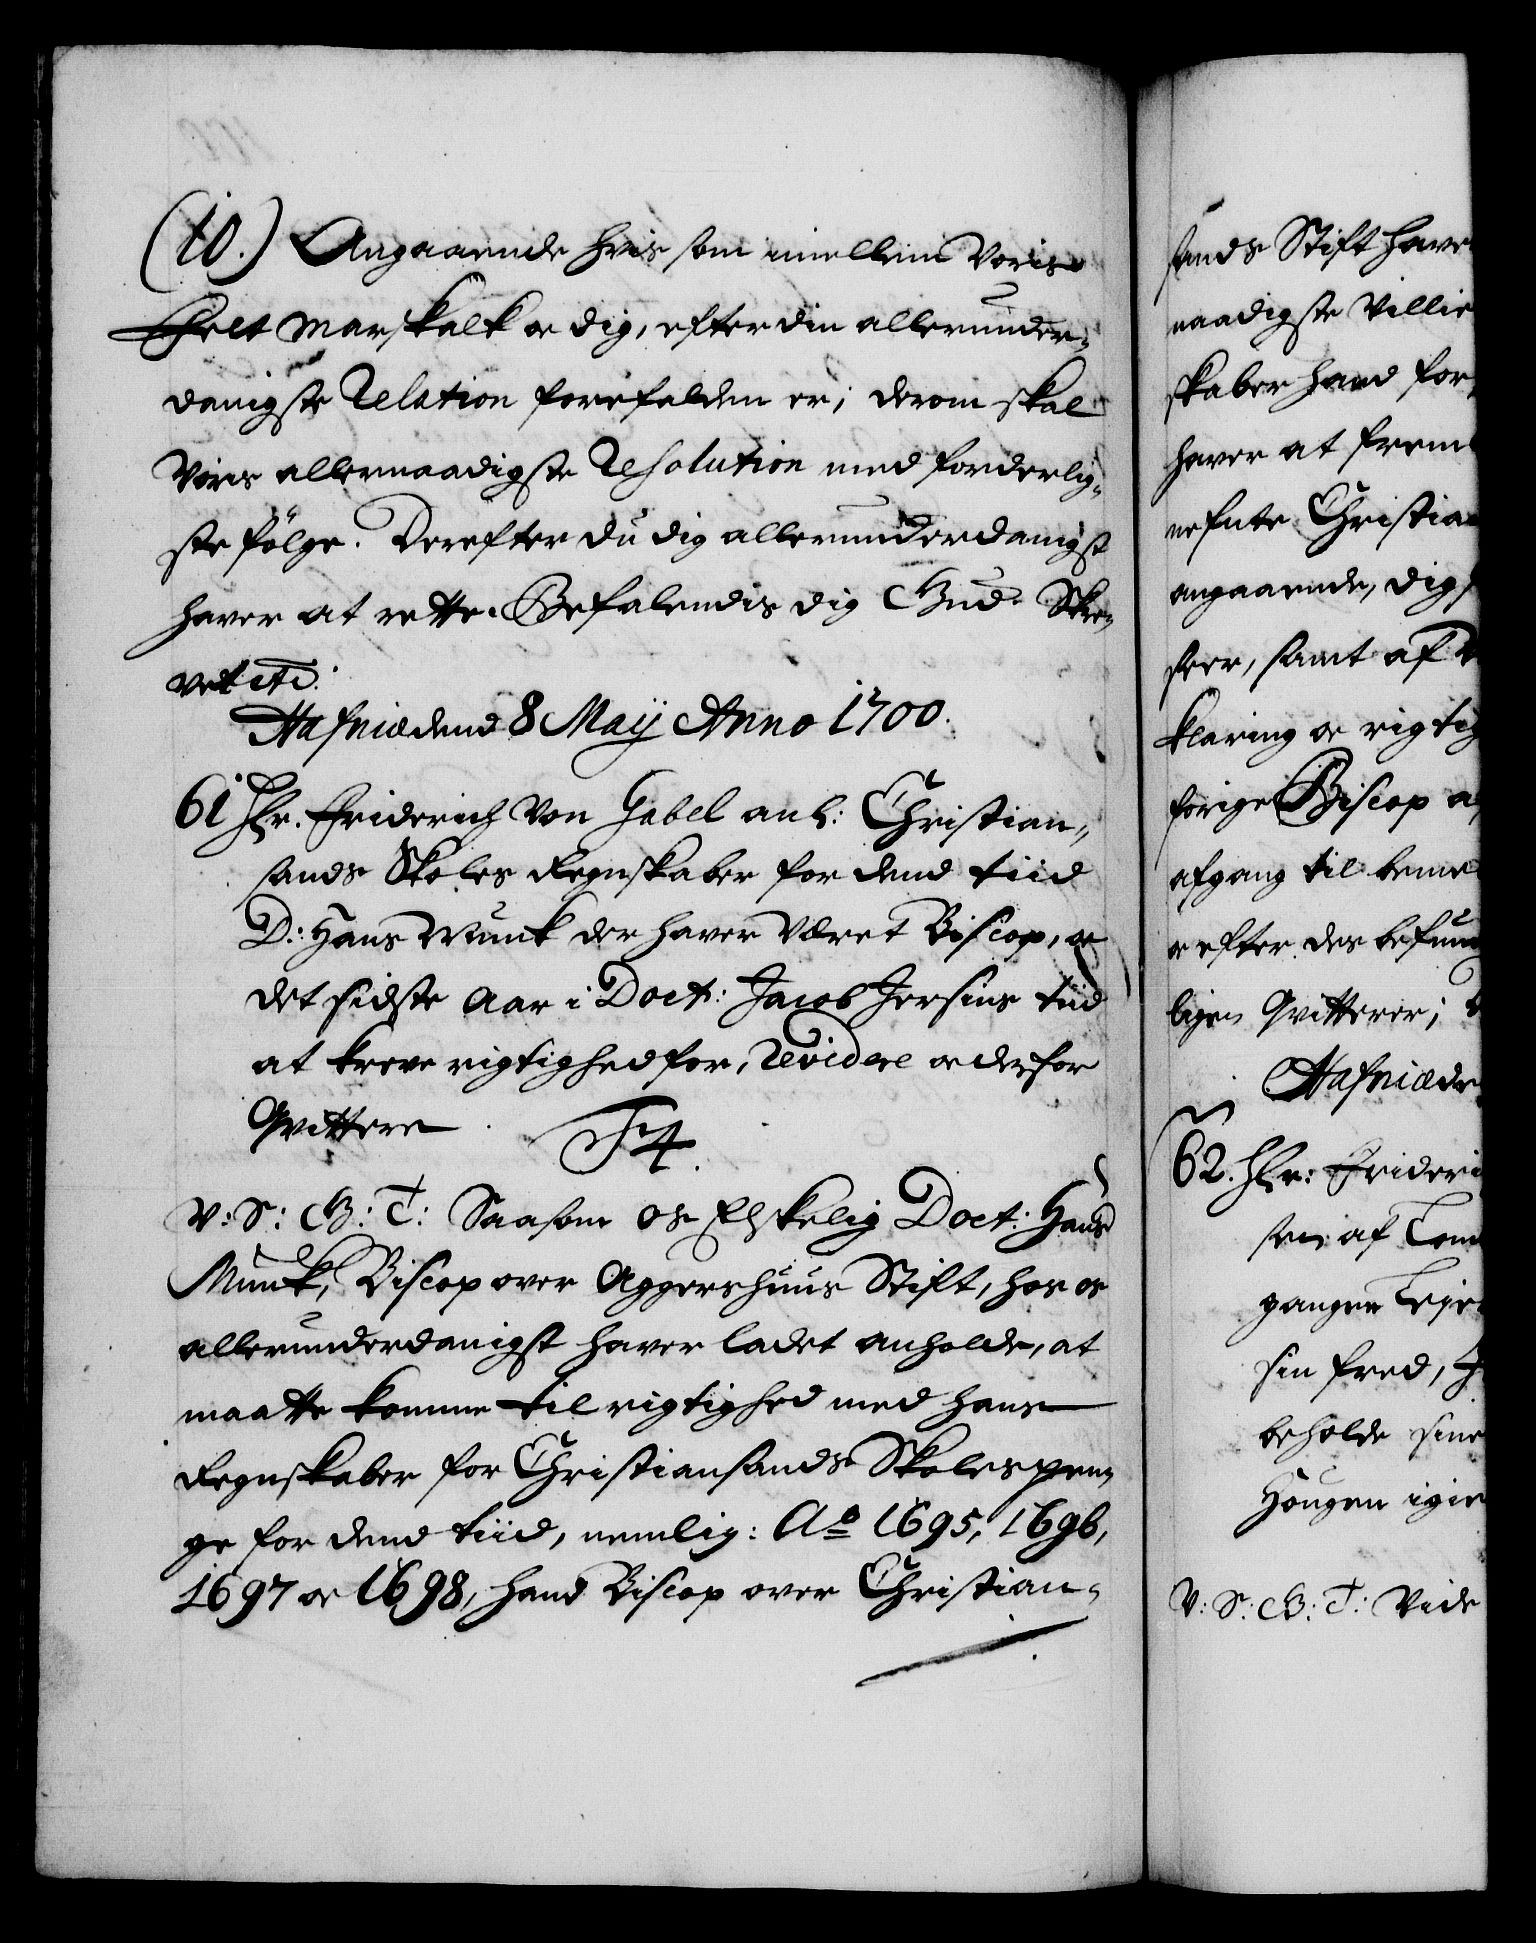 (10.) Angaaende hvis som imellem Voris
Felt Marskalk oc dig, efter din allerunder-
danigste Relation forefalden er; derom skal
Voris allernaadigste Resolution med forderlig-
ste følge. Derefter du dig allerunderdanigst
haver at rette. Befalendis dig Gud. Skre-
vet etc:
Hafniæ dend 8 Maij Anno 1700.
61 Hr. Friderich Von Gabel anl: Christian-
sands Skoles Regnskaber for dend tiid
D: Hans Munk der haver været Biscop, oc
det sidste Aar i Doct: Jacob Jersins tiid
at kreve rigtighed for, Revidere oc derfor
Qvittere
F4.
V: S: G: T: Saasom os Elskelig Doct: Hans
Munk, Biscop over Aggershuus Stift, hos os
allerunderdanigst haver ladet anholde, at
maatte komme til rigtighed med hans
Regnskaber for Christiansands Skoles pen-
ge for dend tiid, nemlig: Ao 1695, 1696,
1697 oc 1698, hand Biscop over Christian-
sands Stift have
naadigste Villie
skaber hand for
haver at frem
nefnte Christian
angaaende, dig
seer, samt af
klaring oc rigtig
forige Biscop a
afgang til beme
oc efter des befund
ligen Qvitterer;
Hafniæ de
62. Hr: Frideri
sen af Tom
gangen Leje
sin fred,
beholde sine
Hougen igie
V: S: G: T: Vide